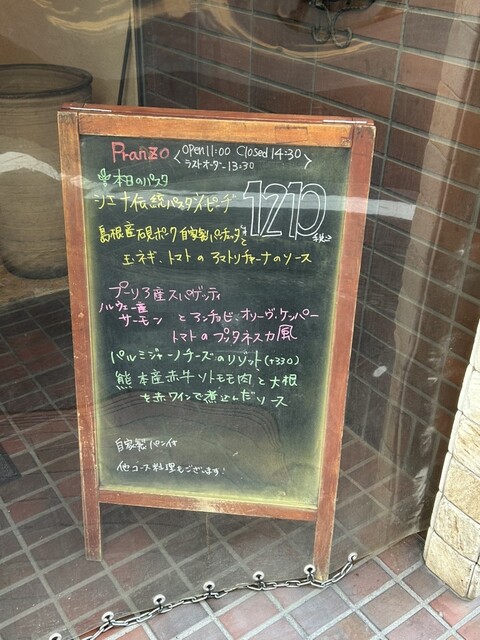 Pranzo <open 11:00 Closed 14:30>
ラストオーダー13:30
本日のパスタ
シエナ伝統パスタ"ピーチ" 1210 税込
島根産石見ポーク自家製パンチェッタと
玉ネギ、トマトのアマトリチャーナのソース
プーリア産スパゲッティ
ノルウェー産
サーモンとアンチョビ、オリーヴ、ケッパー
トマトのプッタネスカ風
パルミジャーノチーズのリゾット(+330)
熊本産赤牛ソトモモ肉と大根
を赤ワインで煮込んだソース
自家製パン付
他コース料理もございます!